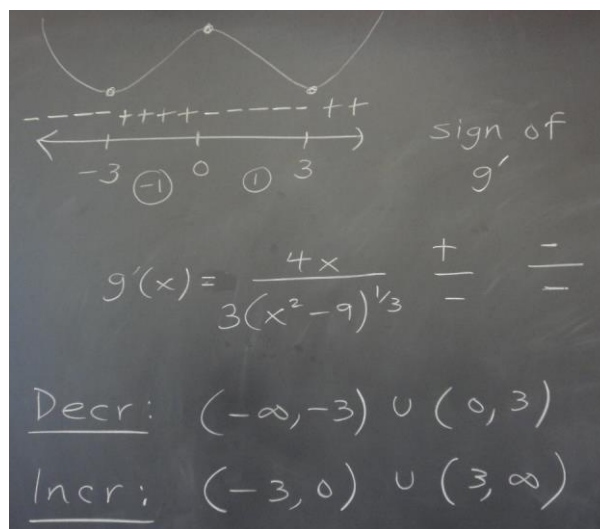 - - - - - + + + + - - - - - - + +
-3 (-1) 0 (1) 3
sign of
g'
g'(x) = 4x / 3(x² - 9)^1/3 + / - - / -
Decr: (-∞, -3) ∪ (0, 3)
Incr: (-3, 0) ∪ (3, ∞)